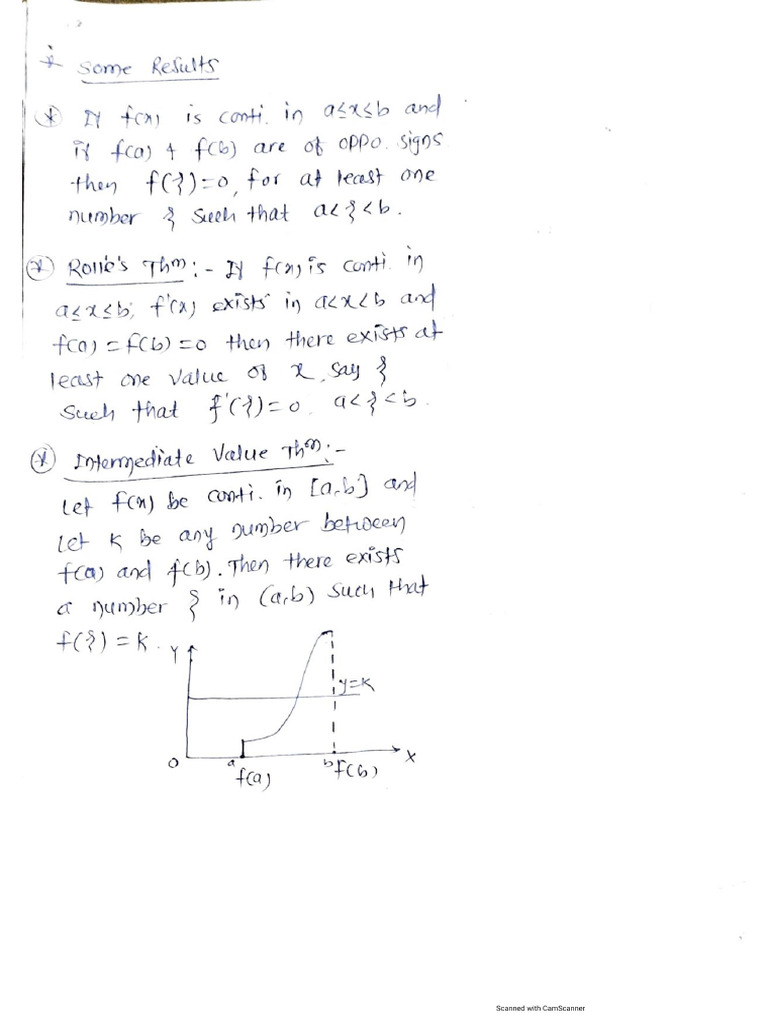 * Some Results
* If f(x) is conti. in a≤x≤b and
if f(a) & f(b) are of oppo. signs
then f(ξ)=0, for at least one
number ξ such that a<ξ<b.
* Rolle's Thm:- If f(x) is conti. in
a≤x≤b; f'(x) exists in a<x<b and
f(a)=f(b)=0 then there exists at
least one value of x, say ξ
such that f'(ξ)=0 a<ξ<b.
* Intermediate Value Thm:-
Let f(x) be conti. in [a,b] and
Let K be any number between
f(a) and f(b). Then there exists
a number ξ in (a,b) such that
f(ξ)=K.
Y
y=K
O a b X
f(a) f(b)
Scanned with CamScanner